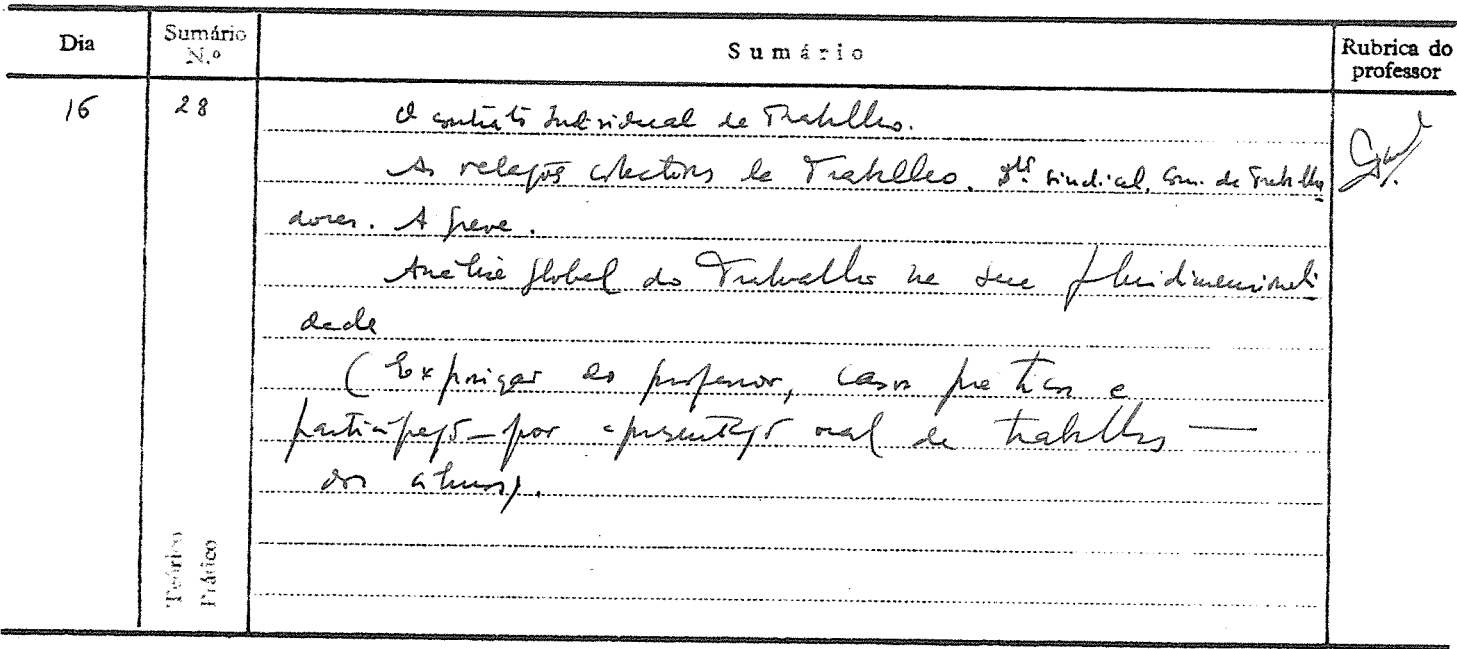 Dia
Sumário N.º
Sumário
Rubrica do professor
16
28
O contrato Individual de Trabalho.
As relações colectivas de Trabalho. sindical, Com. de Trabalha
dores. A greve.
Análise global do Trabalho na sua pluridimensionali
dade
(Exposição do professor, casos práticos e
participação - por apresentação oral de trabalhos —
dos alunos).
Teórico
Prático